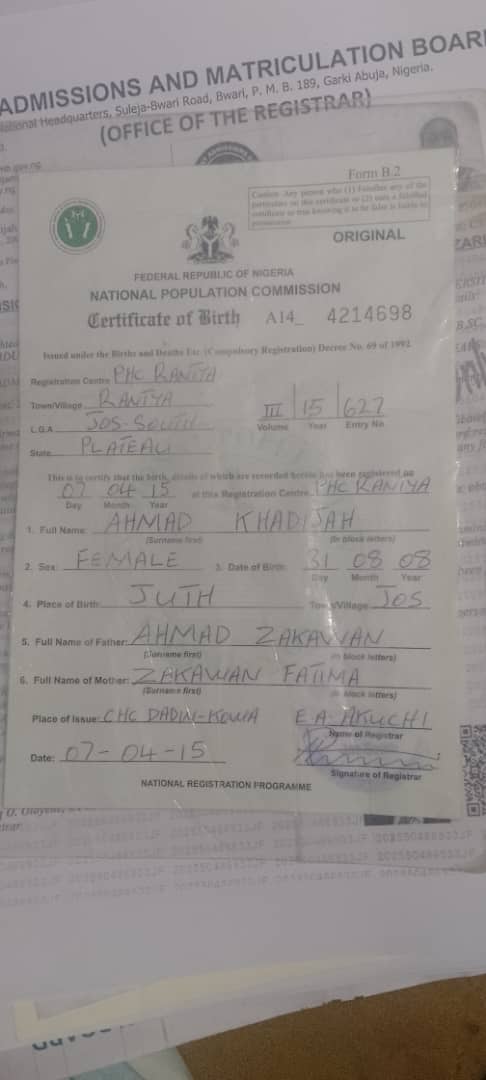 ADMISSIONS AND MATRICULATION BOAR
National Headquarters, Suleja-Bwari Road, Bwari, P. M. B. 189, Garki Abuja, Nigeria.
(OFFICE OF THE REGISTRAR)
Form B.2
Caution: Any person who (1) falsifies any of the
particulars on this certificate or (2) uses a falsified
certificate as true knowing it to be false is liable to
prosecution
ORIGINAL
FEDERAL REPUBLIC OF NIGERIA
NATIONAL POPULATION COMMISSION
Certificate of Birth A14_ 4214698
Issued under the Births and Deaths Etc. (Compulsory Registration) Decree No. 69 of 1992
Registration Centre PHC RANTYA
Town/Village RANTYA
III 15 627
Volume Year Entry No.
L.G.A JOS-SOUTH
State PLATEAU
This is to certify that the birth, details of which are recorded herein has been registered on
07 04 15 at this Registration Centre PHC RANTYA
Day Month Year
1. Full Name: AHMAD KHADIJAH
(Surname first) (In block letters)
2. Sex: FEMALE 3. Date of Birth: 31 08 08
Day Month Year
4. Place of Birth: JUTH Town/Village: JOS
5. Full Name of Father: AHMAD ZAKAWAN
(Surname first) (In block letters)
6. Full Name of Mother: ZAKAWAN FATIMA
(Surname first) (In block letters)
Place of Issue: CHC DADIN-KOWA E.A. AKUCHI
Name of Registrar
Date: 07-04-15
Signature of Registrar
NATIONAL REGISTRATION PROGRAMME